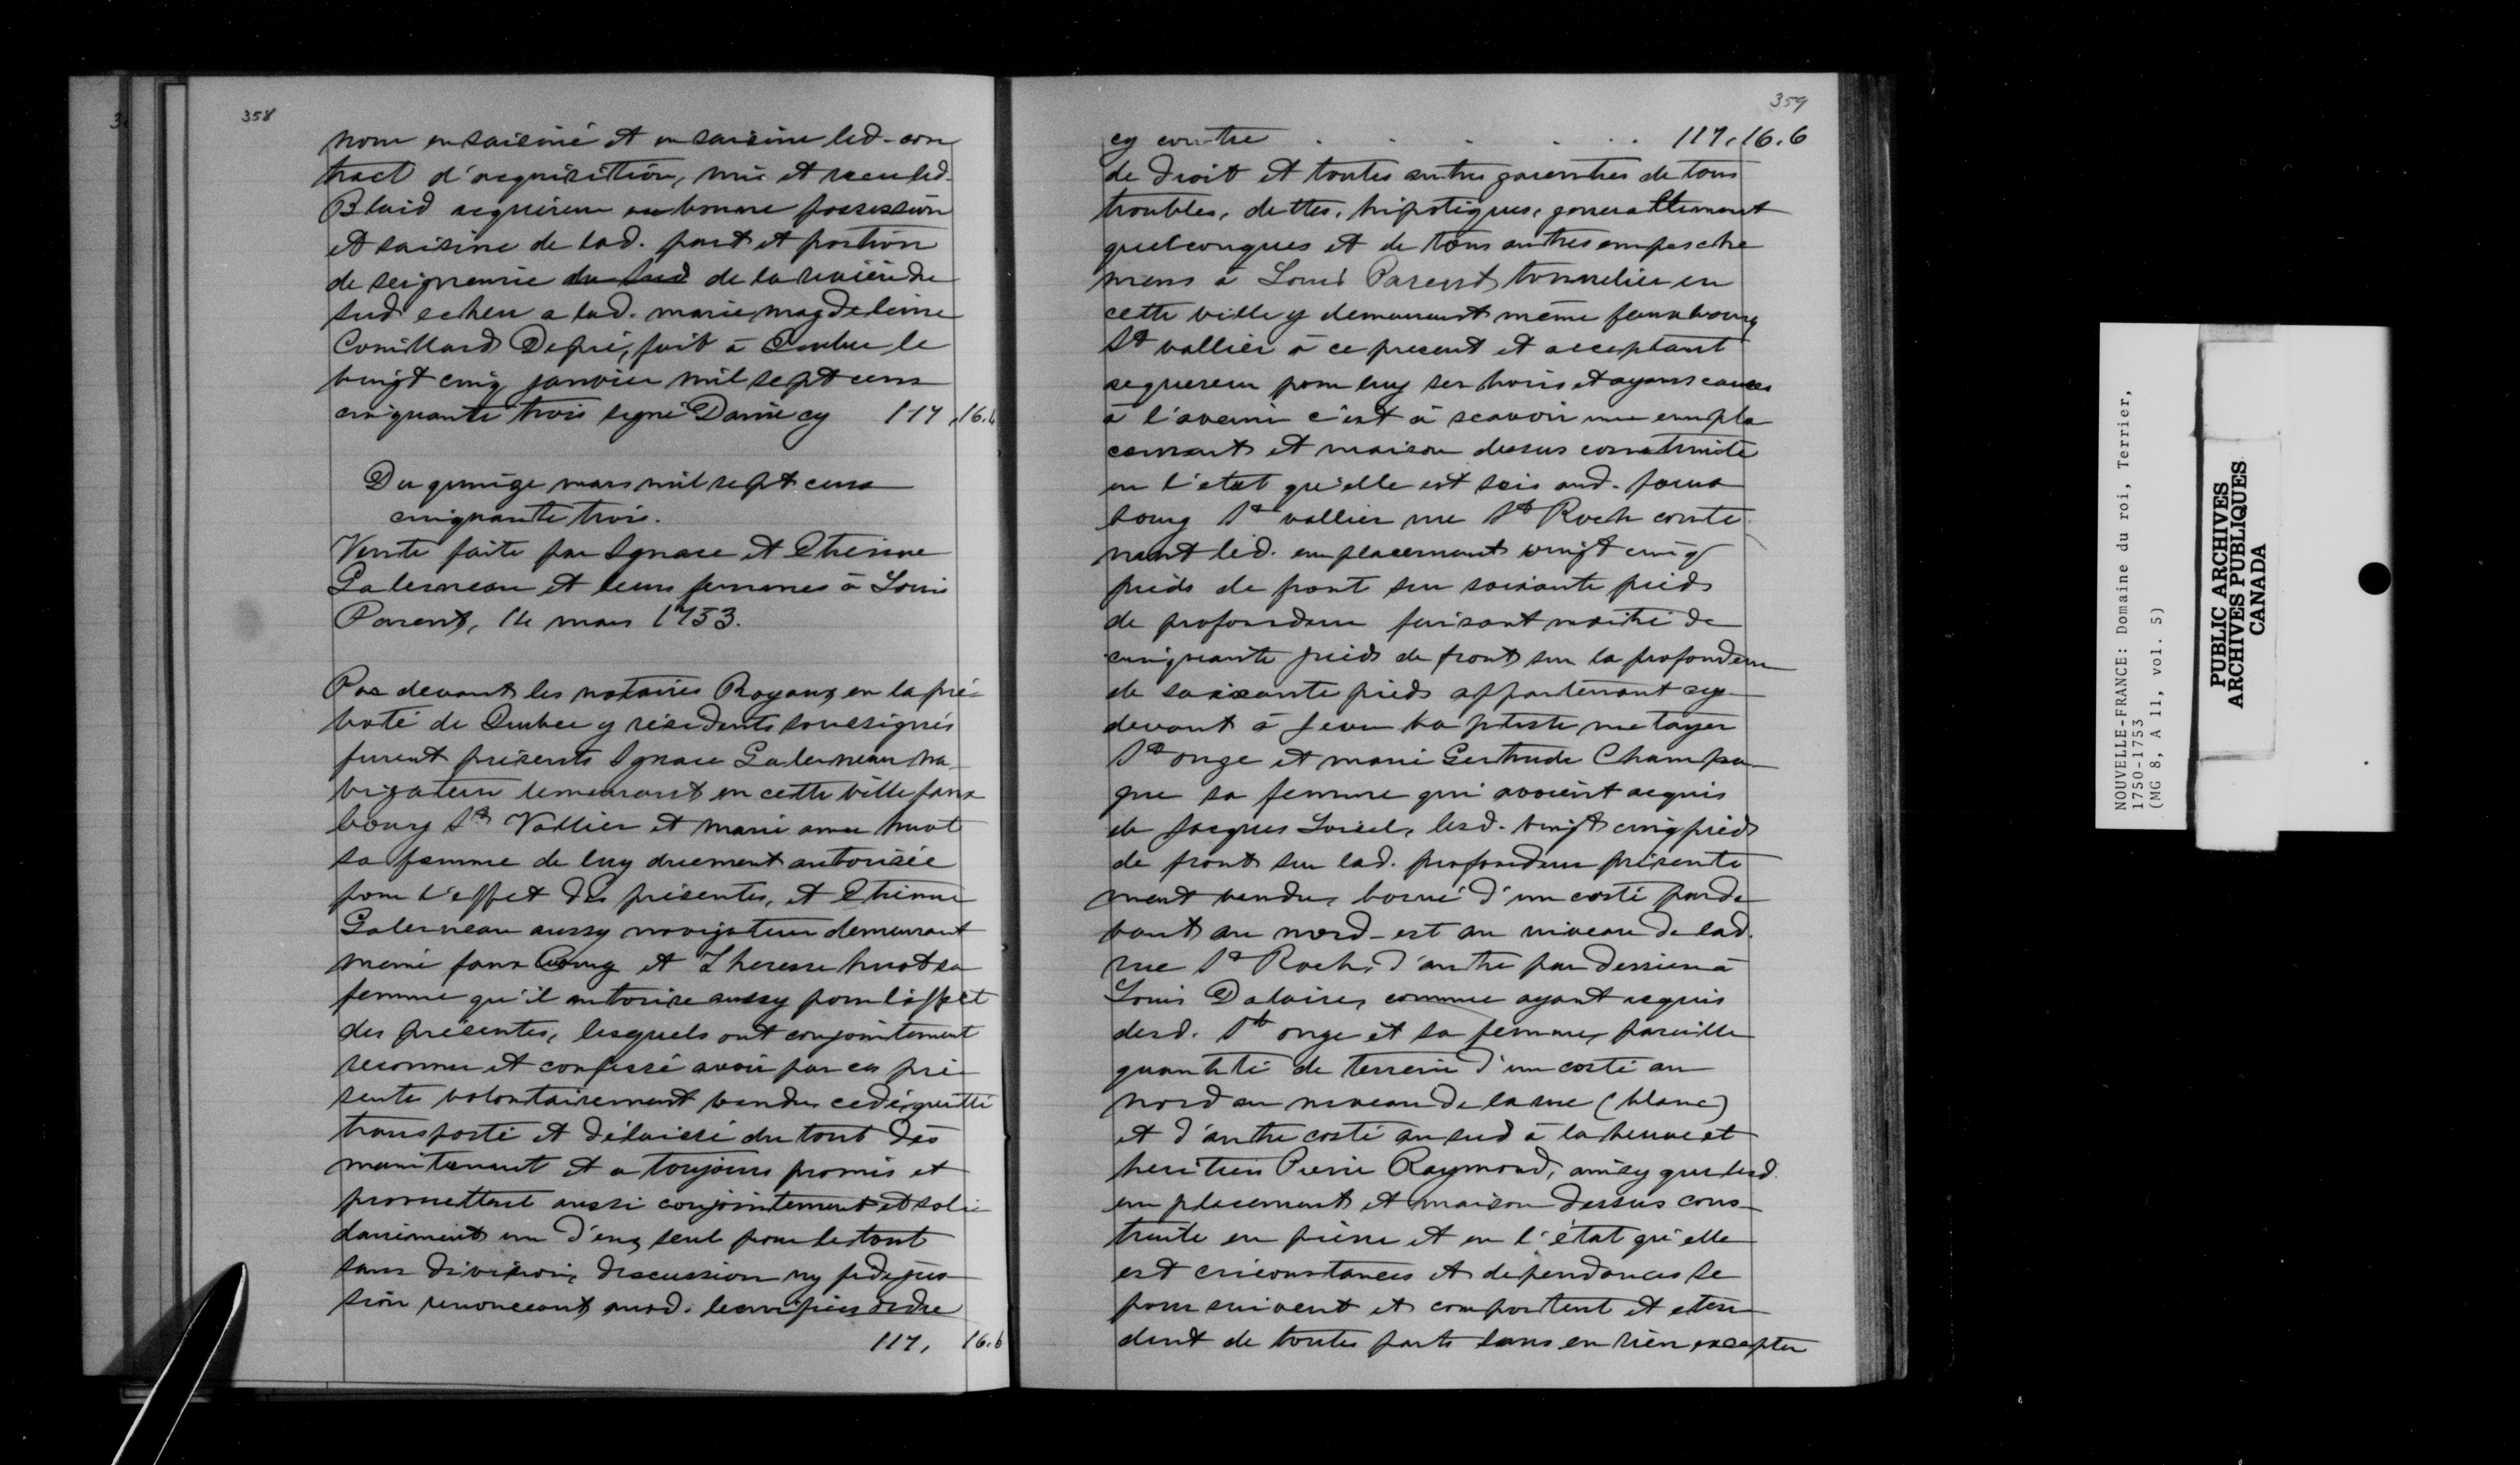 358
nom ensaisiné et ensaisine led. con
tract d'acquisition, mis et receu led.
Blaid acquereur en bonne possession
et saisine de lad. part et portion
de seigneurie du sud de la rivière du
sud echeu a lad. marie magdeleine
Couillard Depré, fait à Quebec le
vingt cinq janvier mil sept cens
cinquante trois signé Daine cy 117, 16.6
Du quinze mars mil sept cens
cinquante trois.
Vente faite par Ignace et Etienne
Galerneau et leurs femmes à Louis
Parent, 14 mars 1753.
Par devant les notaires Royaux en la pré-
voté de Quebec y résidents soussignés
furent présents Ignace Galerneau na-
vigateur demeurant en cette ville faux
bourg St Vallier et marie anne huot
sa femme de luy duement autorisée
pour l'effet des présentes, et Etienne
Galerneau aussy navigateur demeurant
meme faux bourg et Therese huot sa
femme qu'il autorise aussy pour l'effect
des présentes, lesquels ont conjointement
reconnu et confessé avoir par ces pré-
sente volontairement vendu cedé, quitté
transporté et délaissé du tout dès
maintenant et a toujours promis et
promettent aussi conjointement et soli-
dairement un d'eux seul pour le tout
sans division, discussion ny fidejus-
sion renonceant aud. benefices ordre
117, 16.6
359
cy contre . . . . . 117.16.6
de droit et toutes autres garenties de tous
troubles, dettes, hipotiques, generallement
quelconques et de tous autres empesche
mens à Louis Parent, tonnelier en
cette ville y demeurant même fauxbourg
St vallier à ce present et acceptant
acquereur pour luy ses hoirs et ayans causes
à l'avenir c'est à scavoir un empla
cement et maison dessus construite
en l'etat qu'elle est scis aud. faux
bourg St vallier rue St Roch conte
nant led. emplacement vingt cinq
pieds de front sur soixante pieds
de profondeur faisant moitié de
cinquante pieds de front sur la profondeur
de soixante pieds appartenant cy
devant à Jean baptiste metayer
St onge et marie Gertrude Champa
gne sa femme qui avoient acquis
de Jacques Loisel, lesd. vingt cinq pieds
de front sur lad. profondeur présente
ment vendu, borné d'un costé par de
vant au nord-est au niveau de lad.
rue St Roch, d'autre par derrier à
Louis Dalaire, comme ayant acquis
desd. St onge et sa femme, pareille
quantité de terrein d'un costé au
nord au niveau de la rue (blanc)
et d'autre costé au sud à la veuve et
heritiers Pierre Raymond, ainsy que led.
emplacement et maison dessus cons-
truite en pierre et en l'état qu'elle
est circonstances et dependances se
poursuivent et comportent et eten
dent de toutes parts sans en rien excepter
NOUVELLE-FRANCE: Domaine du roi, Terrier,
1750-1753
(MG 8, A 11, vol. 5)
PUBLIC ARCHIVES
ARCHIVES PUBLIQUES
CANADA